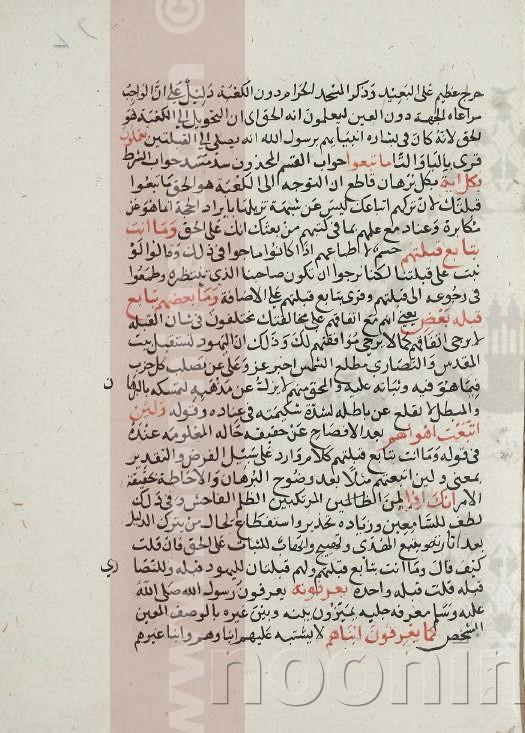 حرج عظيم على البعيد وذكر المسجد الحرام دون الكعبة دليل على ان الواجب
مراعاه الجهة دون العين ليعلمون انه الحق اى ان التحويل الى الكعبة هو
الحق لانه كان فى بشاره انبيايهم برسول الله انه يصلى الى القبلتين تعملون
قرى باليا والتا ما تبعوا جواب القسم المحذوف سد مسد جواب الشرط
بكل اية بكل برهان قاطع ان التوجه الى الكعبة هو الحق ما تبعوا
قبلتك لان تركهم اتباعك ليس عن شبهة تزيلها بايراد الحجة انما هو عن
مكابرة وعناد مع علمهم بما فى كتبهم من نعتك انك على الحق وما انت
بتابع قبلتهم حسم لاطماعهم اذ كانوا ماجوا فى ذلك وقالوا لو
ثبت على قبلتنا لكنا نرجوا ان تكون صاحبنا الذى ننتظره وطمعوا
فى رجوعه الى قبلتهم وقرى بتابع قبلتهم على الاضافة وما بعضهم بتابع
قبله بعض يعنى انهم مع اتفاقهم على مخالفتك مختلفون فى شان القبله
لا يرجى اتفاقهم كما لا يرجى موافقتهم لك وذلك ان اليهود تستقبل بيت
المقدس والنصارى مطلع الشمس اخبر عز وعلى عن تصلب كل حزب
فيما هو فيه وثباته عليه والمحق منهم لا يزل عن مذهبه لتمسكه بالبرهان
والمبطل لا يقلع عن باطله لشدة شكيمته فى عناده وقوله ولئن
اتبعت اهواهم بعد الافصاح عن حقيقه حاله المعلومه عنده
فى قوله وما انت بتابع قبلتهم كلام وارد على سبيل الفرض والتقدير
بمعنى ولين اتبعتهم مثلا بعد وضوح البرهان والاحاطة بحقيقة
الامر انك اذا لمن الظالمين المرتكبين الظلم الفاحش وفى ذلك
لطف للسامعين وزياده تحذير واستفظاع لحال من يترك الدليل
بعد انارته ويتبع الهوى وتهييج والهاب للثبات على الحق فان قلت
كيف قال وما انت بتابع قبلتهم ولهم قبلتان لليهود قبله وللنصارى
قبله قلت قبله واحدة يعرفونه يعرفون رسول الله صلى الله
عليه وسلم معرفه جليه يميزون بينه وبين غيره بالوصف المعين
المشخص كما يعرفون ابناهم لا يشتبه عليهم ابناوهم وابنا غيرهم
noonin